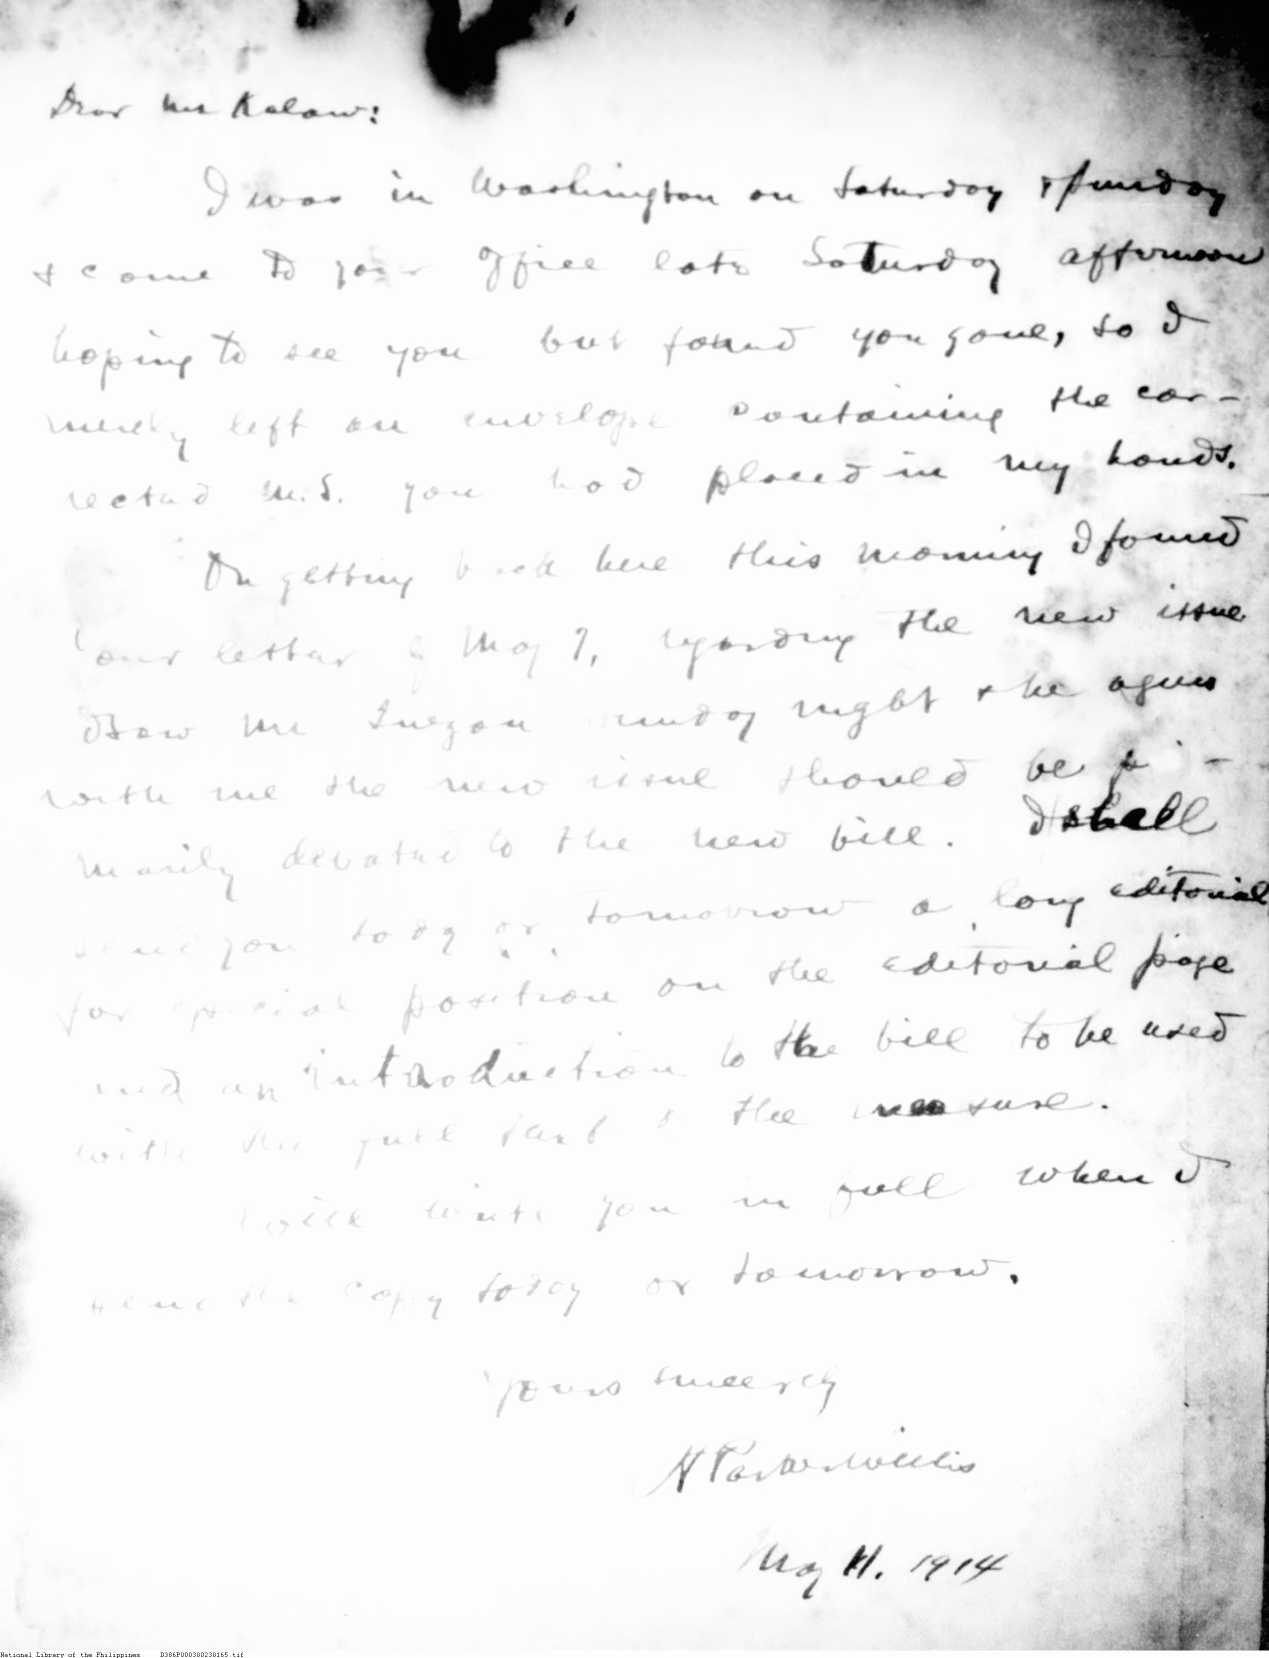 Dear Mr Kalaw:
I was in Washington on Saturday & Sunday
& came to your office late Saturday afternoon
hoping to see you but found you gone, so I
merely left an envelope containing the cor-
rected M.S. you had placed in my hands.
On getting back here this morning I found
your letter of May 7, regarding the new issue
I saw Mr Quezon Sunday night & he agrees
with me the new issue should be pri-
marily devoted to the new bill. I shall
send you today or tomorrow a long editorial
for special position on the editorial page
and an introduction to the bill to be used
with the full text of the measure.
Will write you in full when I
send the copy today or tomorrow.
Yours sincerely
H Parker Willis
May 11. 1914
National Library of the Philippines D386P000300238165.tif